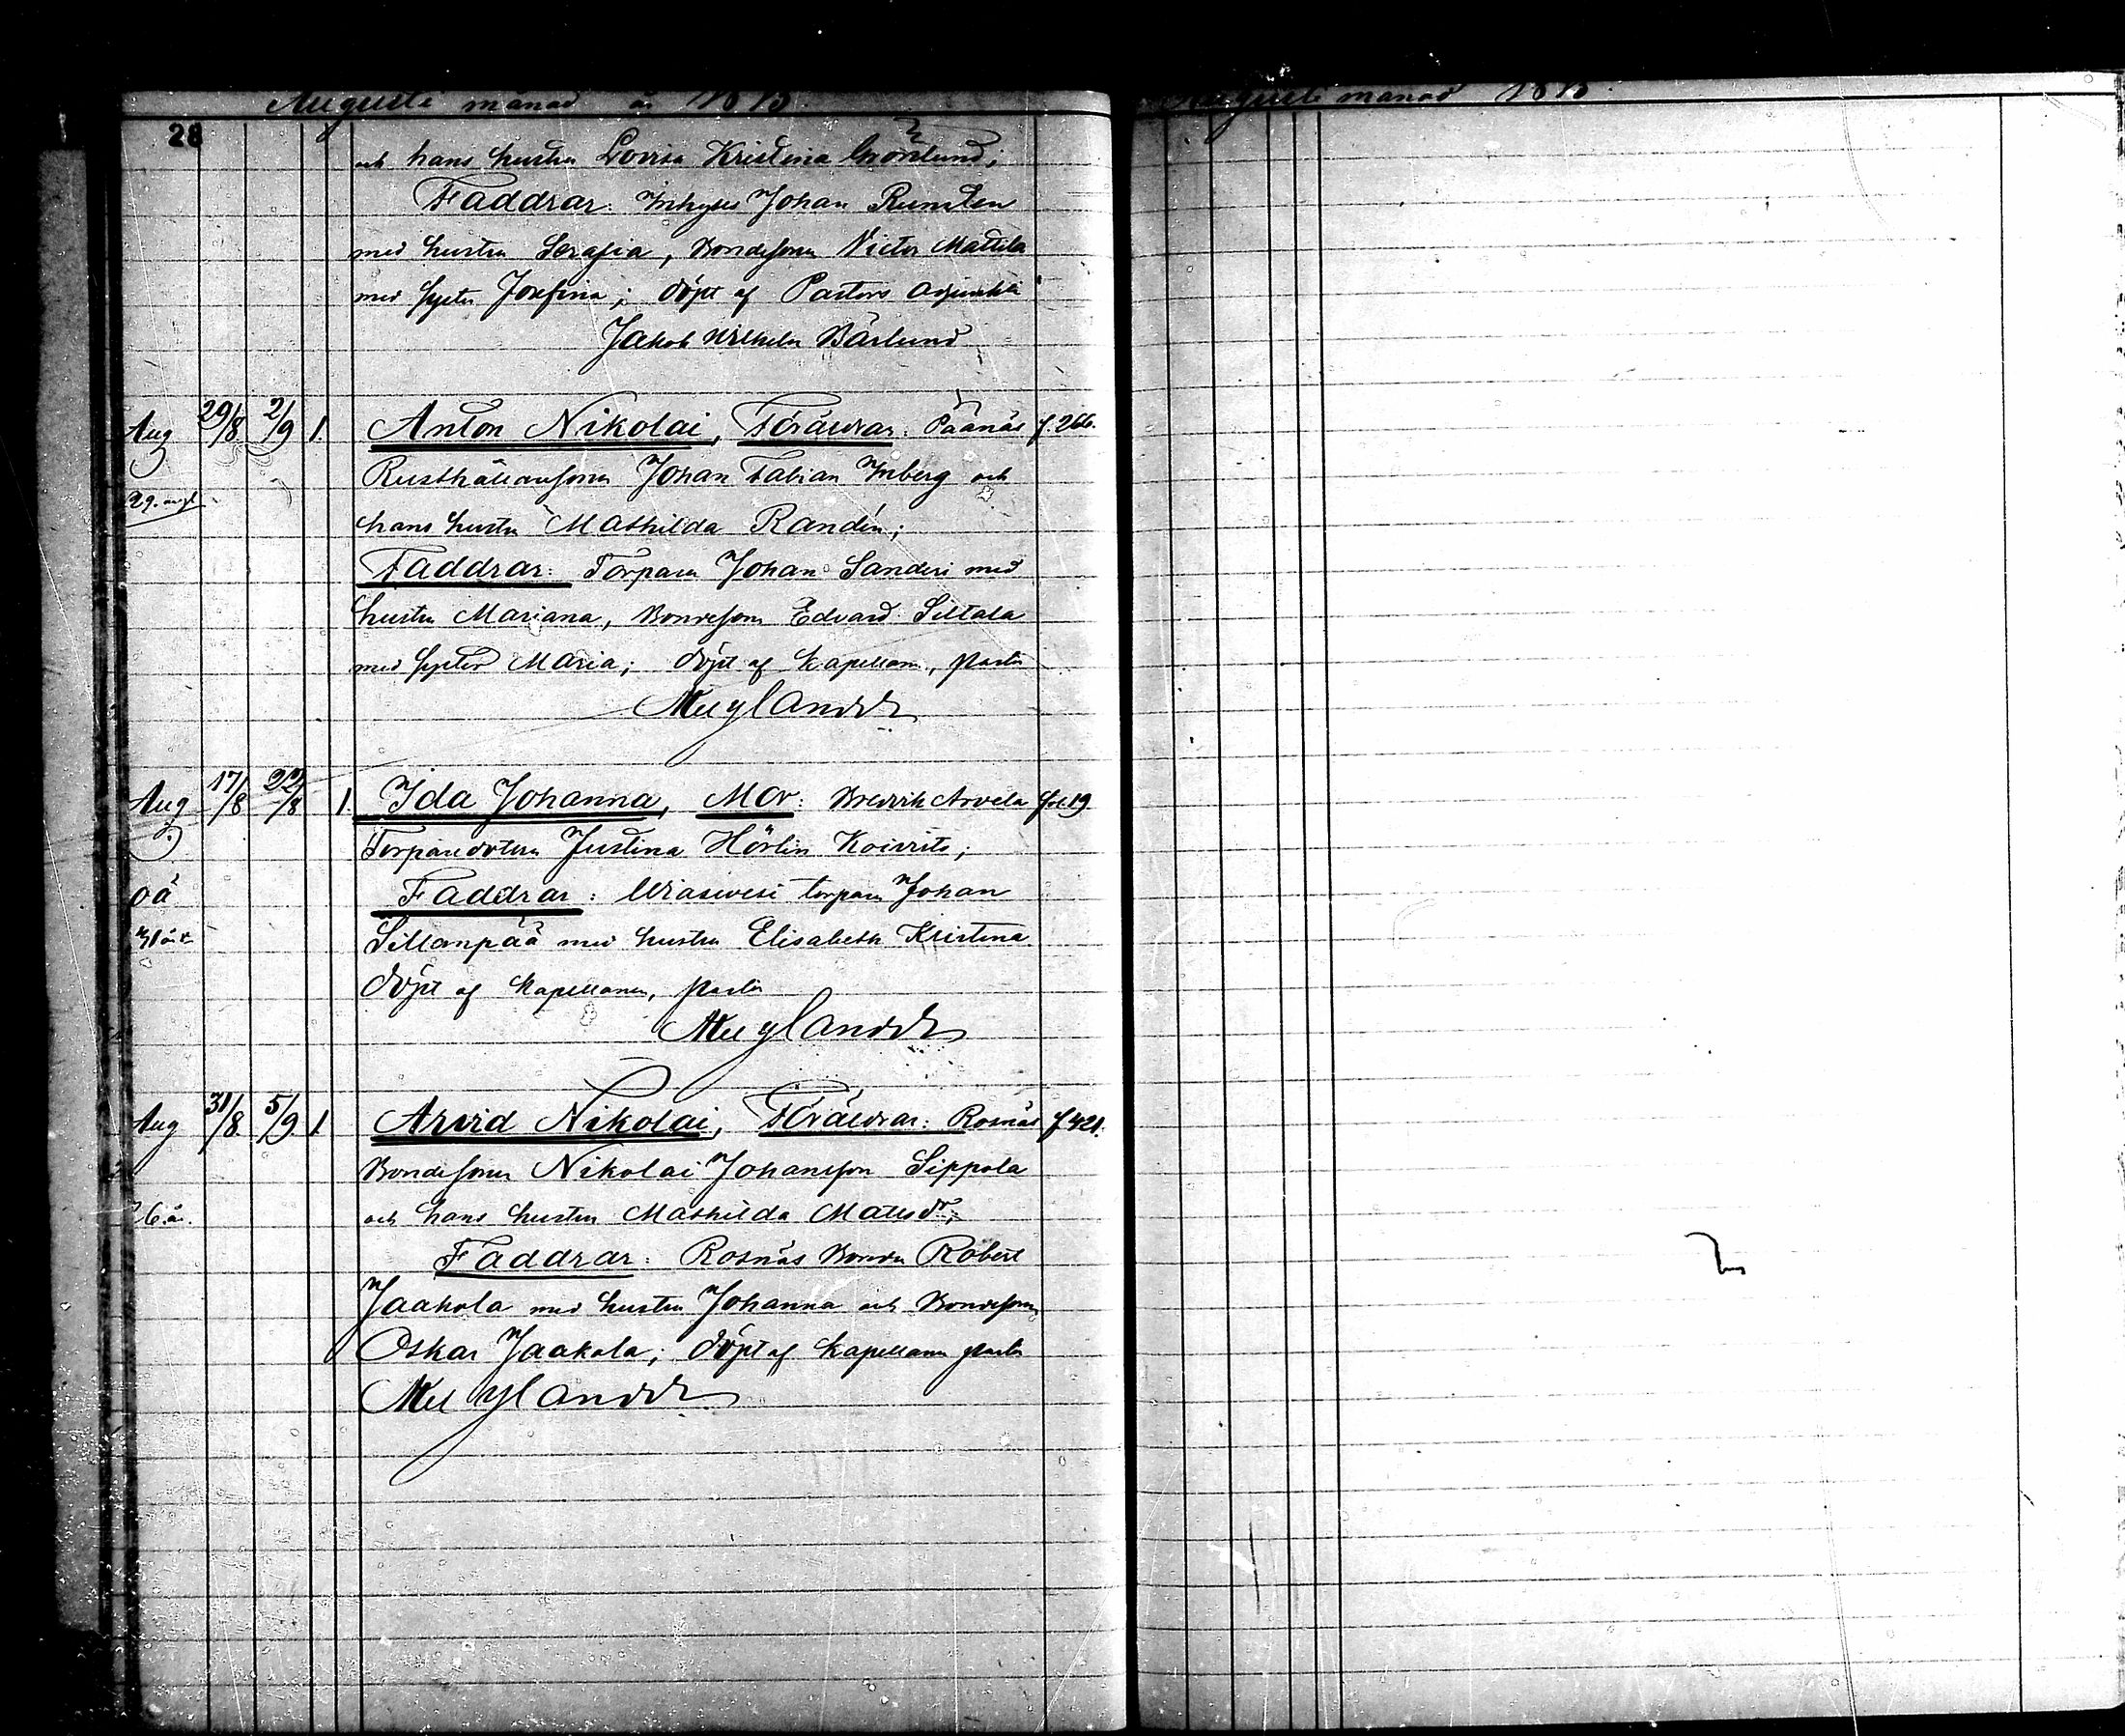 Augusti månad år 1875.
28
och hans hustru Lovisa Kristina Grönlund,
Faddrar: Inhyses Johan Rundsten
med hustru Serafia, Bondesonen Victor Mattila
med syster Josefina; döpt af Pastors adjunkten
Jakob Wilhelm Bärlund
Aug 29/8 2/9 1. Anton Nikolai, Föräldrar: Päänäs f. 266.
Rusthållaresonen Johan Fabian Inberg och
29.
hans hustru Mathilda Randén;
Faddrar: Torparen Johan Sanderi med
hustru Mariana, Bondesonen Edvard Siltala
med syster Maria; döpt af Kapellanen, pastor
Aug 17/8 22/8 1. Ida Johanna, Mor: Bredvik Arvela fol 19
Torparedottern Justina Hörlin Koivisto;
oä Faddrar: torparen Johan
31 år Sillanpää med hustru Elisabeth Kristina
döpt af Kapellanen, pastor
Aug 31/8 5/9 1 Arvid Nikolai, Föräldrar: Rosnäs f 421.
Bondesonen Nikolai Johansson Sippola
26 år. och hans hustru Mathilda Matsdr;
Faddrar: Rosnäs Bonden Robert
Jaakola med hustru Johanna och Bondesonen
Oskar Jaakola; döpt af Kapellanen pastor
Augusti månad 1875.